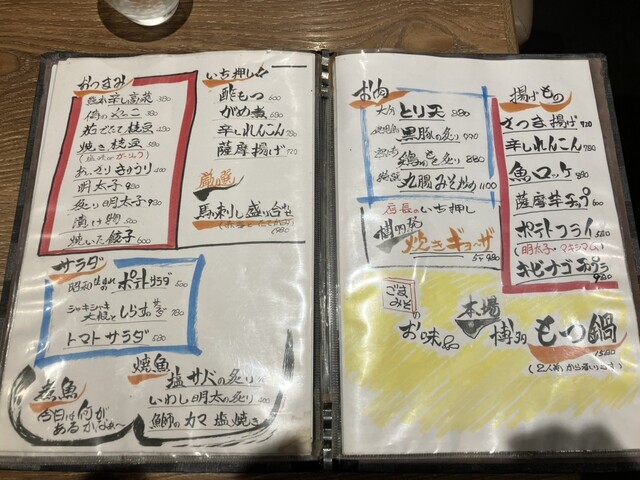 おつまみ
熊本辛し高菜 380
ゆでたて枝豆
焼き枝豆
(塩味orガーリック)
きゅうり 400
明太子 980
炙り明太子 980
漬け物
焼いた餃子 600
いち押し!!
酢もつ 600
がめ煮 680
辛しれんこん 780
薩摩揚げ 720
厳選
馬刺し盛り合せ
サラダ
昭和生まれのポテトサラダ 500
シャキシャキ
大根としらすのサラダ 780
トマトサラダ 580
煮魚
今日は何が
あるかなぁ〜
焼魚
塩サバの炙り
いわし明太の炙り
鰤のカマ塩焼き
お肉
とり天 880
黒豚の炙り 990
鶏もも炙り 880
丸腸みそ炒め 1100
店長のいち押し
博多 焼きギョーザ
5ヶ 980
揚げもの
さつま揚げ 720
辛しれんこん 780
魚ロッケ 380
薩摩芋チップ
600
ポテトフライ 580
(明太子・マキシマム)
キビナゴ天ぷら
980
ごま
みそ
お味品
本場
博多 もつ鍋
1580